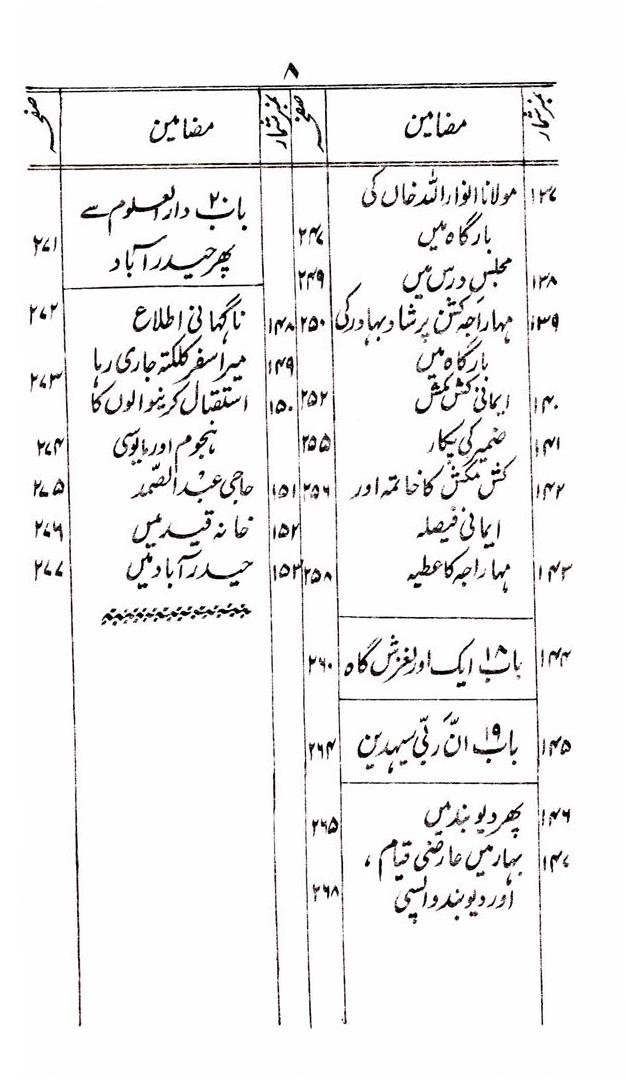 ۸
نمبر شمار مضامین صفحہ
۱۳۷ مولانا انوار اللہ خاں کی
بارگاہ میں ۲۴۷
۱۳۸ مجلس درس میں ۲۴۹
۱۳۹ مہاراجہ کشن پرشاد بہادر کی ۲۵۰
بارگاہ میں
۱۴۰ ایمانی کش مکش ۲۵۲
۱۴۱ ضمیر کی پکار ۲۵۵
۱۴۲ کش مکش کا خاتمہ اور ۲۵۶
ایمانی فیصلہ
۱۴۳ مہاراجہ کا عطیہ ۲۵۸
۱۴۴ باب ۱۸ ایک اور لغزش گاہ ۲۶۰
۱۴۵ باب ۱۹ انَّ ربّی سیہدین ۲۶۴
۱۴۶ پھر دیوبند میں ۲۶۵
۱۴۷ بہار میں عارضی قیام ،
اور دیوبند واپسی ۲۶۸
نمبر شمار مضامین صفحہ
باب ۲۰ دارالعلوم سے
پھر حیدرآباد ۲۷۱
۱۴۸ ناگہانی اطلاع ۲۷۲
۱۴۹ میرا سفر کلکتہ جاری رہا ۲۷۳
۱۵۰ استقبال کرنیوالوں کا
ہجوم اور مایوسی ۲۷۴
۱۵۱ حاجی عبدالصّمد ۲۷۵
۱۵۲ خانہ قید میں ۲۷۶
۱۵۳ حیدرآباد میں ۲۷۷